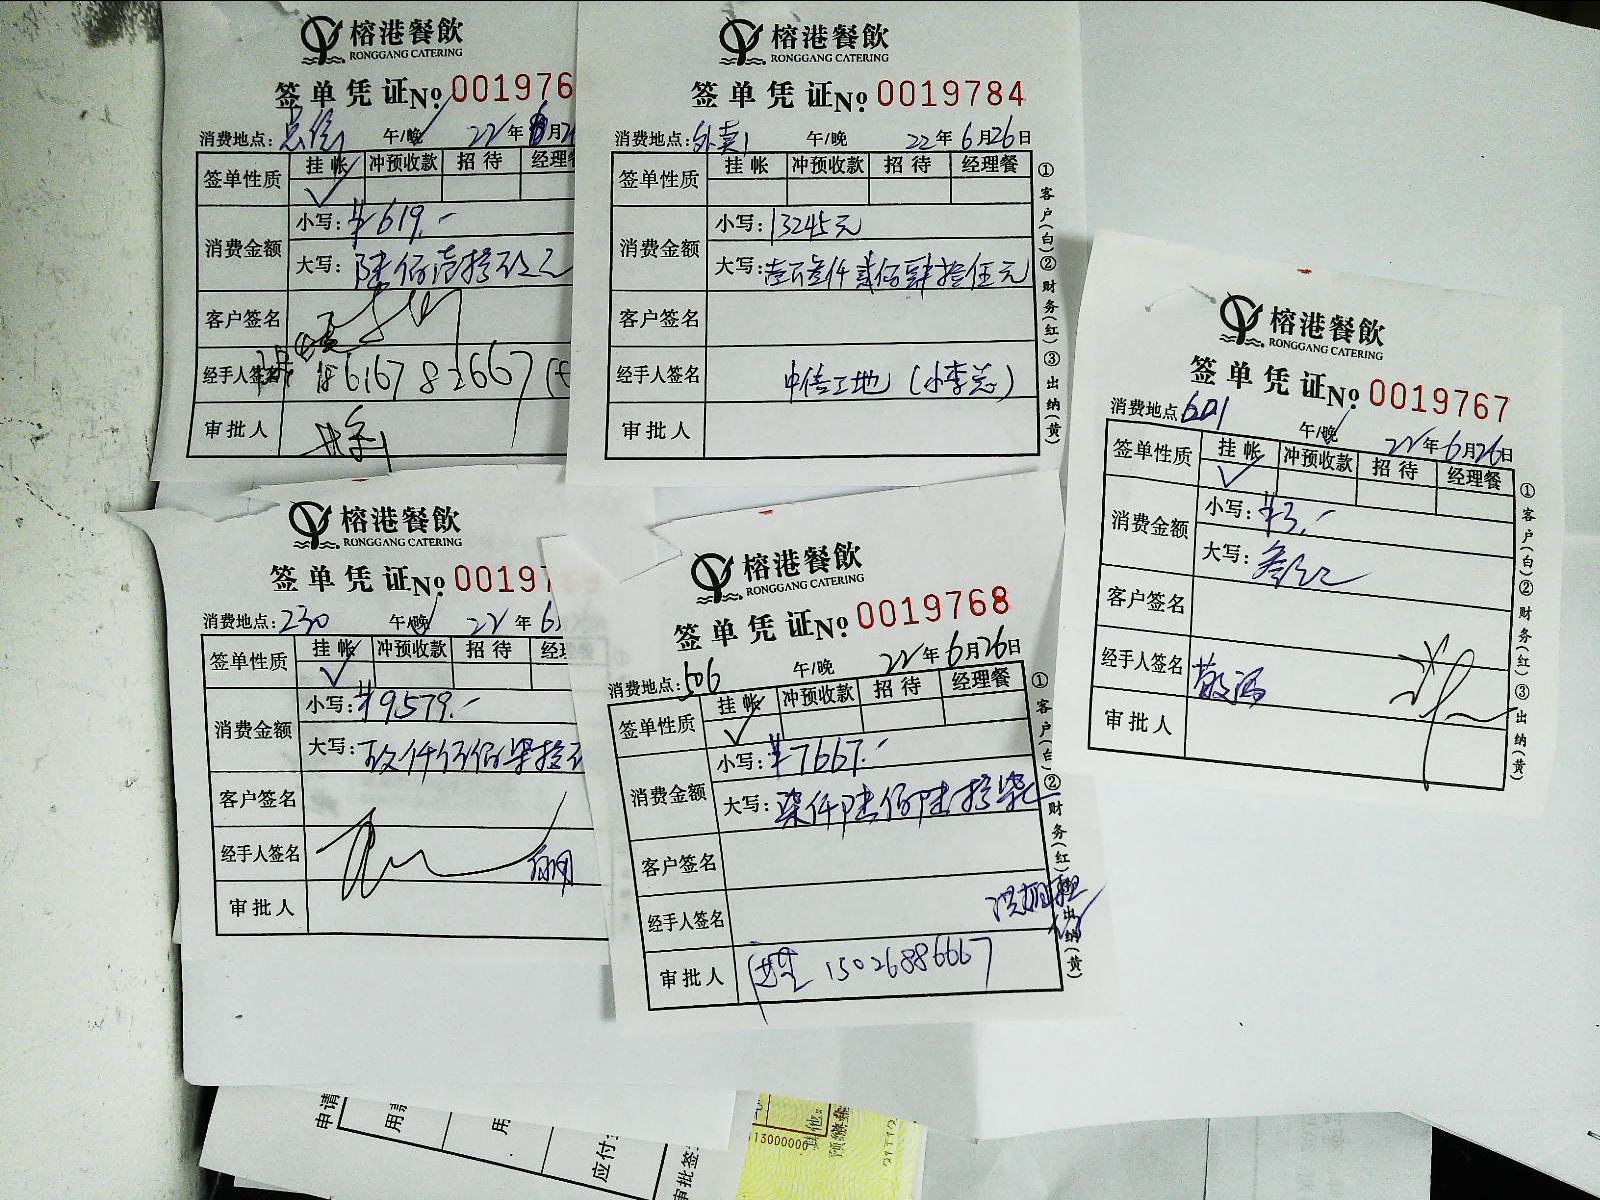 榕港餐飲
RONGGANG CATERING
签单凭证 No. 001976
消费地点: 午/晚 22年 月2
签单性质 挂帐 冲预收款 招待 经理餐
✓
消费金额 小写: ¥619.-
大写: 陆佰壹拾玖元
客户签名
经手人签名 18616782667
审批人
榕港餐飲
RONGGANG CATERING
签单凭证 No. 0019784
消费地点: 外卖1 午/晚 22年6月26日
签单性质 挂帐 冲预收款 招待 经理餐
消费金额 小写: 13245元
大写: 壹万叁仟贰佰肆拾伍元
客户签名
经手人签名 中信工地(小李总)
审批人
①客户(白)②财务(红)③出纳(黄)
榕港餐飲
RONGGANG CATERING
签单凭证 No. 0019767
消费地点 601 午/晚 22年6月26日
签单性质 挂帐 冲预收款 招待 经理餐
✓
消费金额 小写: ¥3.-
大写: 叁元
客户签名
经手人签名
审批人
①客户(白)②财务(红)③出纳(黄)
榕港餐飲
RONGGANG CATERING
签单凭证 No. 00197
消费地点: 230 午/晚 22年6
签单性质 挂帐 冲预收款 招待 经理
✓
消费金额 小写: ¥9,579.-
大写: 玖仟伍佰柒拾
客户签名
经手人签名
审批人
榕港餐飲
RONGGANG CATERING
签单凭证 No. 0019768
消费地点: 506 午/晚 22年6月26日
签单性质 挂帐 冲预收款 招待 经理餐
✓
消费金额 小写: ¥7667.-
大写: 柒仟陆佰陆拾柒元
客户签名
经手人签名
审批人 15026886667
①客户(白)②财务(红)出纳(黄)
申请
用
用
应付:
审批签
13000000
其他
预缴